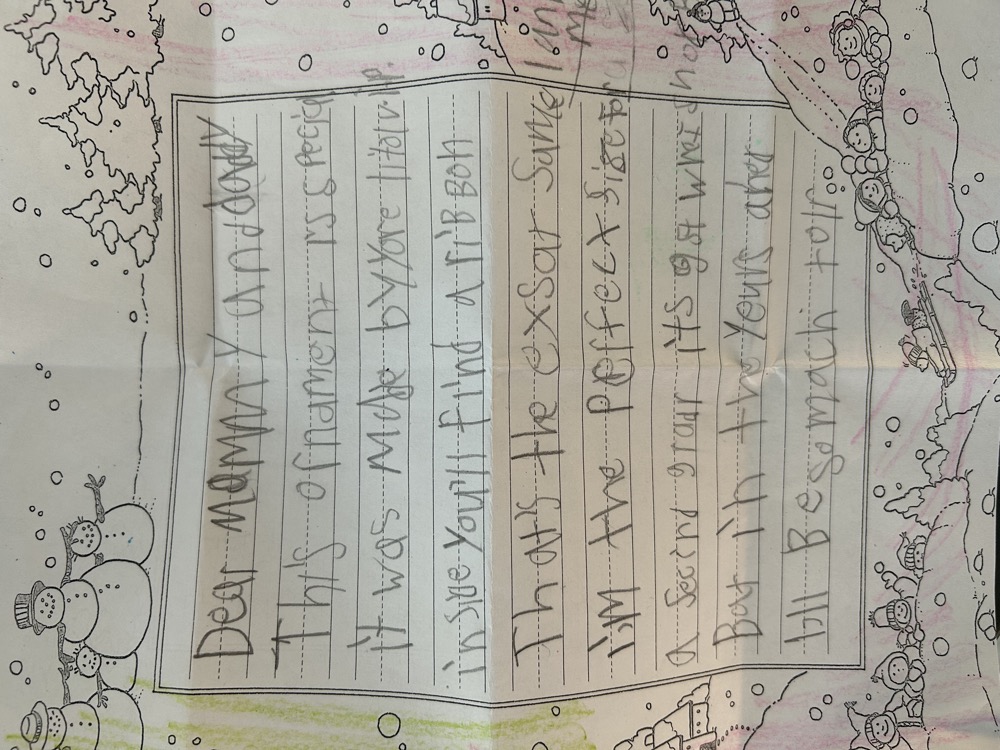 Dear Mammy and daddy
This ornament is special
it was Made by yore
inside You'll find a riBBon
Thats the exsact same
I'm the Perfect size for
a Secind graur it's got what
But in the Years ahed
I'll Be so mach